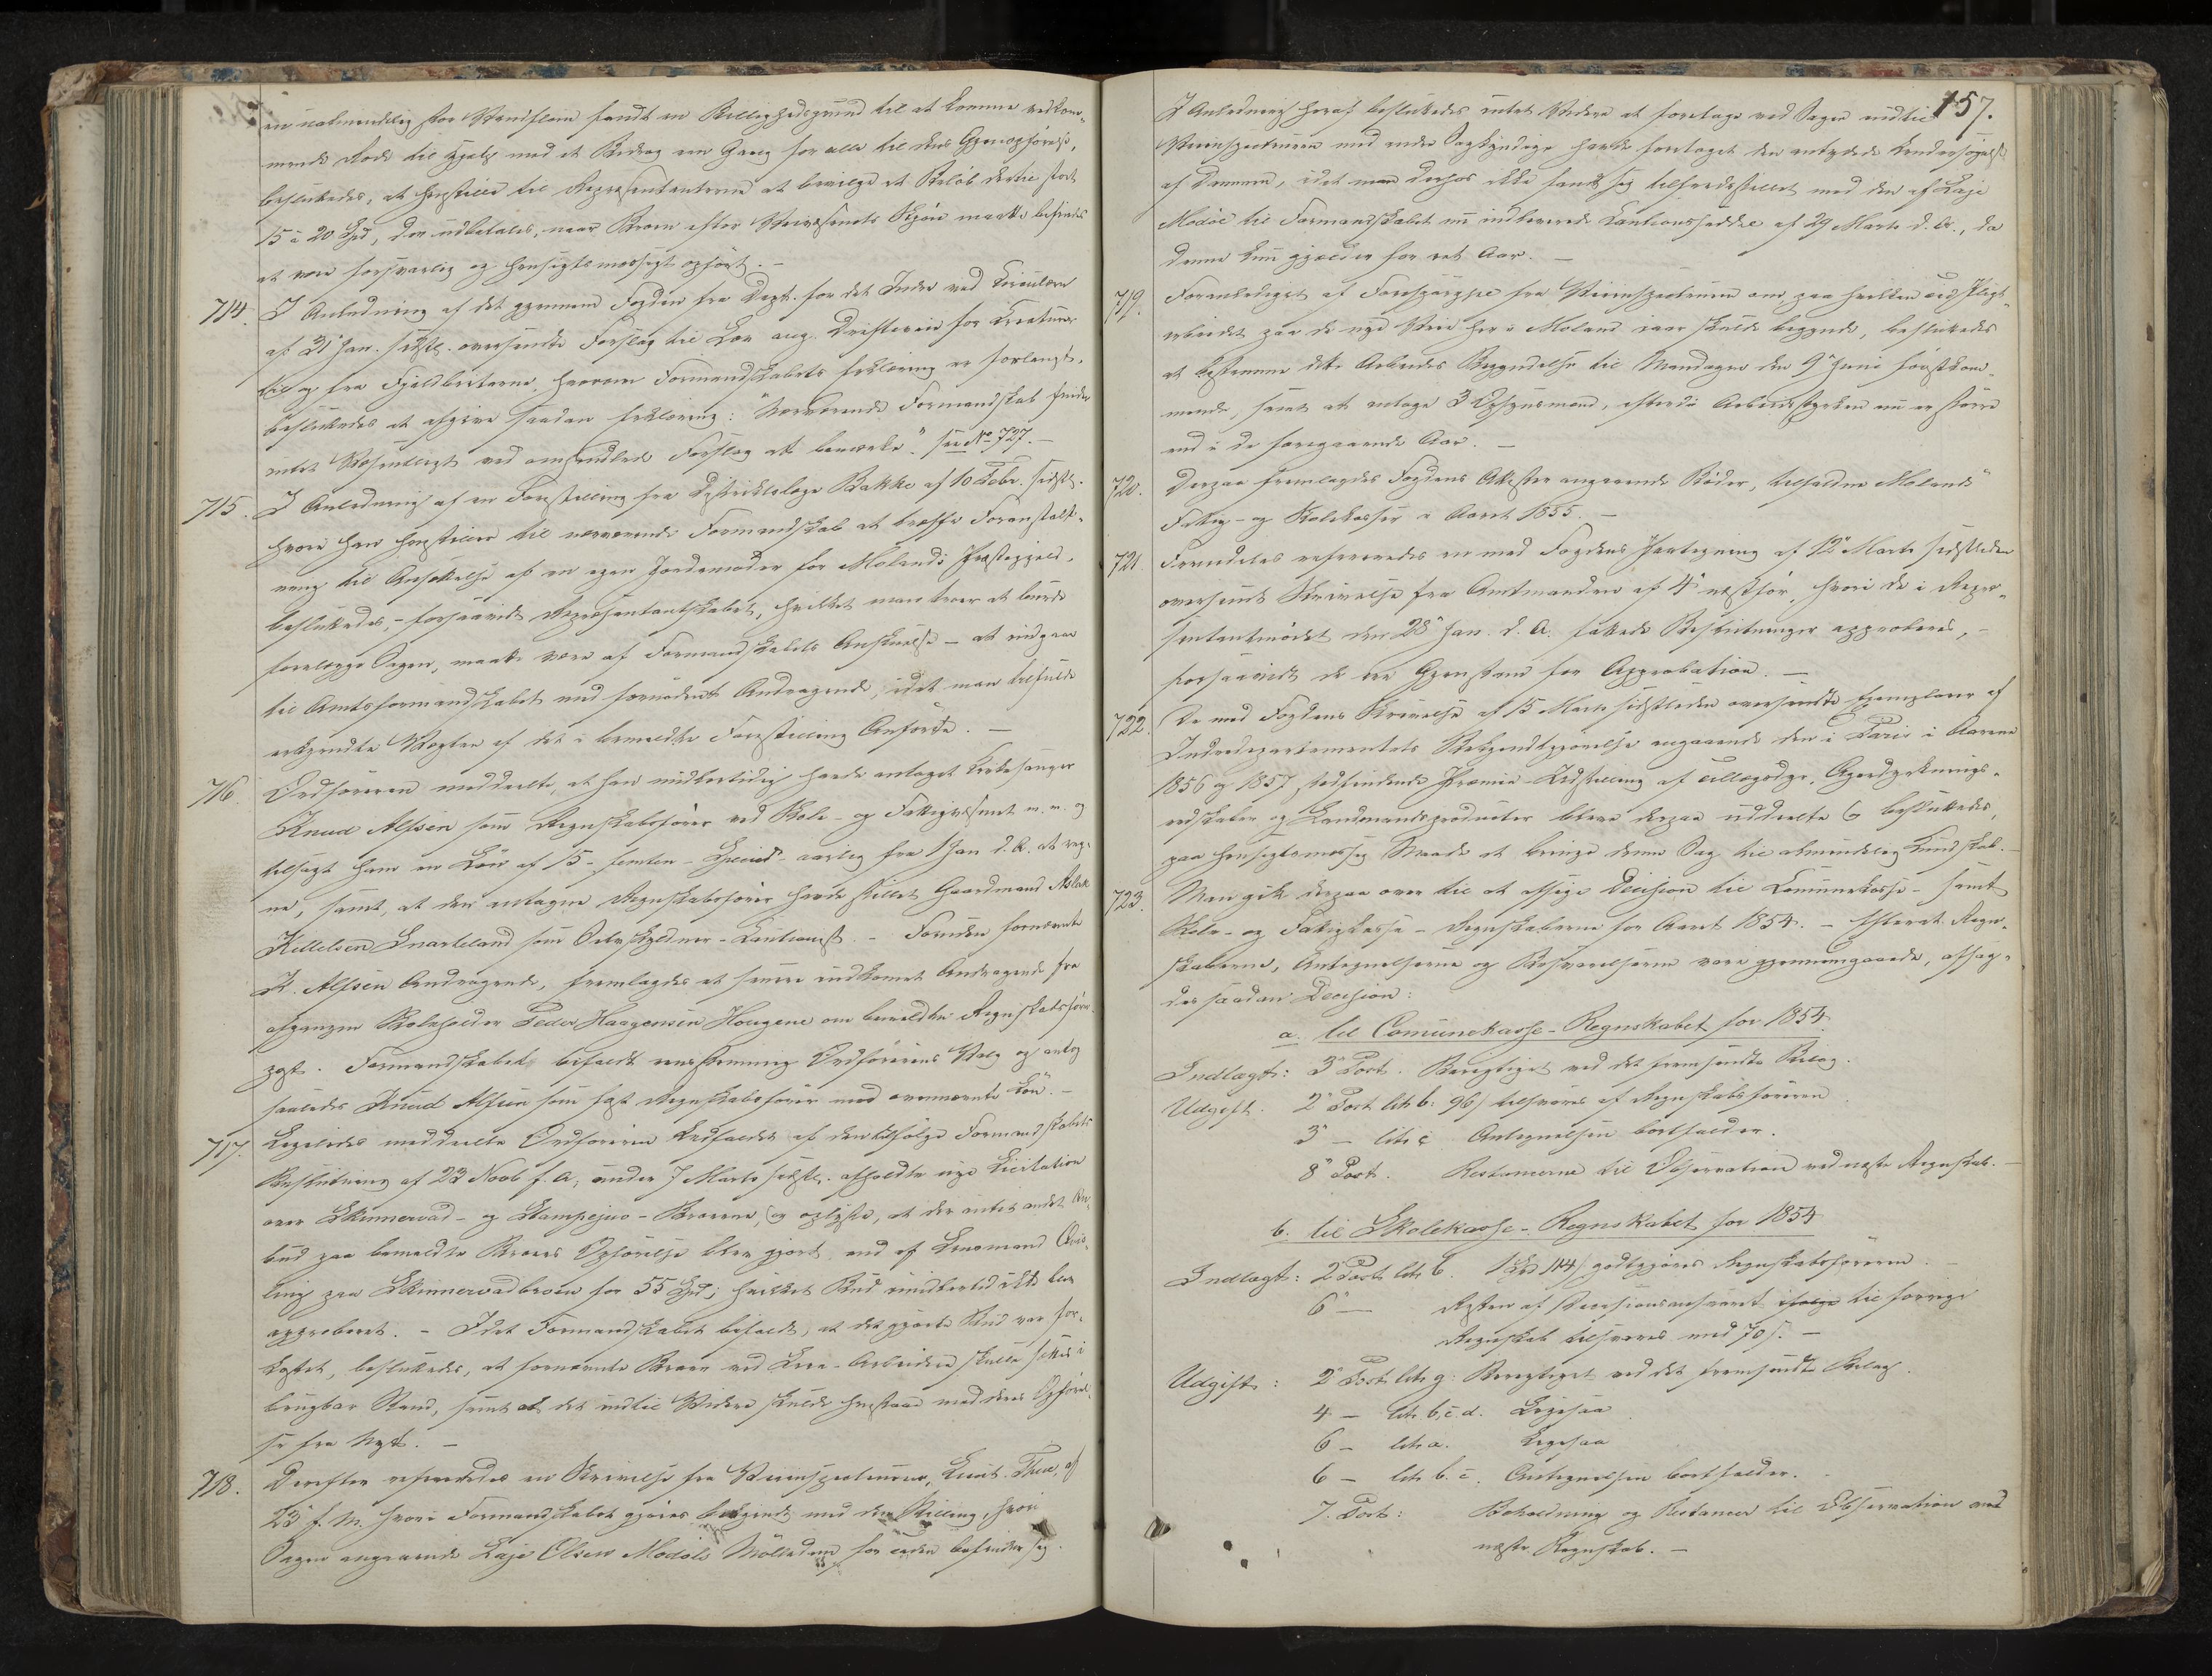 en ualmindelig stor Vandflom fandt en Billighedsgrund til at komme vedkom-
mende Rode til Hjelp med et Bidrag een Gang for alle til dens Gjenopførelse,
besluttedes, at henstille til Repræsentanterne at bevilge et Beløb dertil stort
15 à 20 Spd, der udbetales, naar Broen efter Veivæsenets Skjøn maatte befindes
at være forsvarlig og hensigtsmæssigt opført. –
714. I Anledning af det gjennem Fogden fra Dept. for det Indre ved Circulære
af 31 Jan. sidstl. oversendte Forslag til Lov ang. Drifteveie for Creaturer
til og fra Fjeldbeiterne, hvorom Formandskabets Erklæring er forlangt,
besluttedes at afgive saadan Erklæring: "Nærværende Formandskab finder
intet Væsentligt ved omhandlede Forslag at bemærke". see No 727. –
715. I Anledning af en Forestilling fra Distriktslæge Bakke af 10 Febr. sidstl.
hvori han henstiller til nærværende Formandskab at træffe Foranstalt-
ning til Ansættelse af en egen Jordemoder for Molands Præstegjeld,
besluttedes, – forsaavidt Repræsentantskabet, hvilket man troer at burde
forelægge Sagen, maatte være af Formandskabets Anskuelse – at indgaae
til Amtsformandskabet med fornødent Andragende, idet man tilfulde
erkjendte Vægten af det i bemeldte Forestilling Anførte. –
716. Ordføreren meddeelte, at han midlertidig havde antaget Kirkesanger
Knud Alfsen som Regnskabsfører ved Skole- og Fattigvæsenet m. m. og
tilsagt ham en Løn af 15 – femten – Specied. aarlig fra 1 Jan d. A. at reg-
ne, samt, at den antagne Regnskabsfører havde stillet Gaardmand Aslak
Killelsen Snarteland som Selvskyldner-Cautionist. – Foruden fornævnte
K. Alfsen Andragende, fremlagdes et senere indkomet Andragende fra
afgangen Skoleholder Peder Haagensen Haugene om bemeldte Regnskabsfører-
post. Formandskabet bifaldt eenstemmig Ordførerens Valg og antog
saaledes Knud Alfsen som fast Regnskabsfører med ovennævnte Løn. –
717. Ligeledes meddeelte Ordføreren Udfaldet af den ifølge Formandskabets
Beslutning af 23 Novb f. A, under 7 Marts sidstl. afholdte nye Licitation
over Skinnervad- og Stampejuv-Broerne, og oplyste, at der intet andet An-
bud paa bemeldte Broers Opførelse blev gjort, end af Lensmand Qvis-
ling paa Skinnervadbroen for 55 Spd; hvilket Bud imidlertid ikke blev
approberet. – Idet Formandskabet bifaldt, at det gjorte Bud var for-
kastet, besluttedes, at fornævnte Broer ved Leie-Arbeidere skulle sættes i
brugbar Stand, samt at det indtil Videre skulde henstaae med deres Opførel-
se fra Nyt. –
718. Derefter refereredes en Skrivelse fra Veiinspecteuren, Lieut. Thue, af
23 f. M. hvori Formandskabet gjøres bekjendt med den Stilling, hvori
Sagen angaaende Laje Olsen Modøls Mølledam for Tiden befinder sig.
157.
I Anledning heraf besluttedes intet Videre at foretage ved Sagen indtil
Veiinspecteuren med andre Sagkyndige havde foretaget den antydede Undersøgelse
af Dammen, idet man derhos ikke fandt sig tilfredsstillet med den af Laje
Modøl til Formandskabet nu indleverede Cautionsseddel af 29 Marts d. A., da
denne kun gjælder for eet Aar. –
719. Foranlediget af Forespørgsel fra Veiinspecteuren om, paa hvilken Tid Pligt-
arbeidet paa de nye Veie her i Moland iaar skulde begynde, besluttedes
at bestemme dette Arbeides Begyndelse til Mandagen den 9 Juni førstkom-
mende, samt at antage 3 Opsynsmænd, efterdi Arbeidsstyrken nu er større
end i de foregaaende Aar. –
720. Derpaa fremlagdes Fogdens Attester angaaende Bøder, tilfaldne Molands
Fattig- og Skolekasser i Aaret 1855. –
721. Fremdeles refereredes en med Fogdens Paategning af 12 Marts sidstleden
oversendt Skrivelse fra Amtmanden af 4 næstfør, hvori de i Repræ-
sentantmødet den 28 Jan. d. A. fattede Beslutninger approberes, –
forsaavidt de ere Gjenstand for Approbation. –
722. De med Fogdens Skrivelse af 15 Marts sidstleden oversendte Exemplarer af
Indredepartementets Bekjendtgjørelse angaaende den i Paris i Aarene
1856 og 1857 stedfindende Præmie-Udstilling af Tillægsdyr, Agerdyrknings-
redskaber og Landmandsproducter bleve derpaa uddeelte og besluttedes,
paa hensigtsmæssig Maade at bringe denne Sag til almindelig Kundskab. –
723. Man gik derpaa over til at afsige Decision til Comunekasse- samt
Skole- og Fattigkasse-Regnskaberne for Aaret 1854. – Efterat Regn-
skaberne, Antegnelserne og Besvarelserne vare gjennemgaaede, afsag-
des saadan Decision:
a. til Comunekasse-Regnskabet for 1854
Indtægt: 3 Post. Berigtiget ved det fremsendte Bilag.
Udgift. 2 Post litr b: 96 ß tilsvares af Regnskabsføreren
3 – litr c Antegnelsen bortfalder.
8 Post. Restancerne til Observation ved næste Regnskab. –
b. til Skolekasse-Regnskabet for 1854
Indtægt: 2 Post litr b. 1 Spd 114 ß godtgjøres Regnskabsføreren. –
6 – Resten af Decisionsansvaret ifølge til forrige
Regnskab tilsvares med 70 ß. –
Udgift: 2 Post litr g: Berigtiget ved det fremsendte Bilag.
4. – litr b, c. d. Ligesaa
6 – litr a. Ligesaa
6 – litr b. c. Antegnelsen bortfalder. –
7. Post: Beholdning og Restancer til Observation ved
næste Regnskab. –